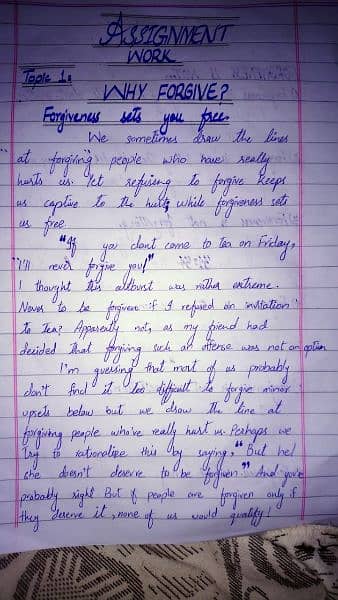 ASSIGNMENT
WORK
Topic 1:
WHY FORGIVE?
Forgiveness sets you free.
We sometimes draw the lines
at forgiving people who have really
hurts us. Yet refusing to forgive keeps
us captive to the hurt, while forgiveness sets
us free.
"If you dont come to tea on Friday,
I'll never forgive you!"
I thought this outburst was rather extreme.
Never to be forgiven if I refused an invitation
to tea? Apparently not, as my friend had
decided that forgiving such an offense was not an option
I'm guessing that most of us probably
don't find it too difficult to forgive minor
upsets below but we draw the line at
forgiving people who've really hurt us. Perhaps we
try to rationalize this by saying, "But he/
she doesn't deserve to be forgiven." And you're
probably right But if people are forgiven only if
they deserve it, none of us would qualify!